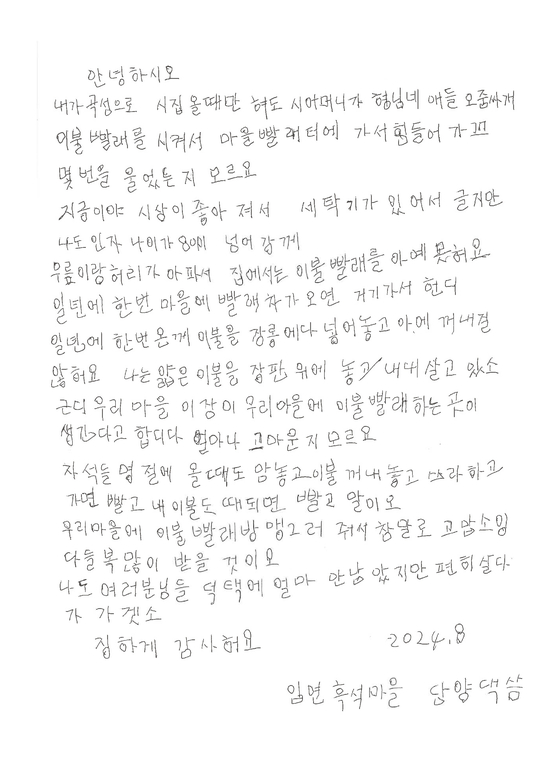 안녕하시오
내가 곡성으로 시집 올때만 혀도 시어머니가 형님네 애들 오줌싸개
이불 빨래를 시켜서 마을 빨래터에 가서 힘들어 가꼬
몇번을 울었는지 모르요
지금이야 시상이 좋아져서 세탁기가 있어서 글지만
나도 인자 나이가 80이 넘어감께
무릎이랑 허리가 아파서 집에서는 이불빨래를 아예 못혀요
일년에 한번 마을에 빨래차가 오면 거기가서 헌디
일년에 한번 온께 이불을 장롱에다 넣어놓고 아예 꺼내질
않혀요 나는 얇은 이불을 장판 위에 놓고 내내 살고 있소
근디 우리 마을 이장이 우리마을에 이불빨래하는 곳이
생긴다고 합디다 얼마나 고마운지 모르요
자석들 명절에 올때도 맘놓고 이불 꺼내놓고 쓰라하고
가면 빨고 내 이불도 때되면 빨고 말이오
우리마을에 이불 빨래방 맹그러 줘서 참말로 고맙소잉
다들 복 많이 받을 것이오
나도 여러분님들 덕택에 얼마 안남았지만 편히 살다
가 가겟소
징하게 감사혀요 2024.8
입면 흑석마을 담양댁 씀